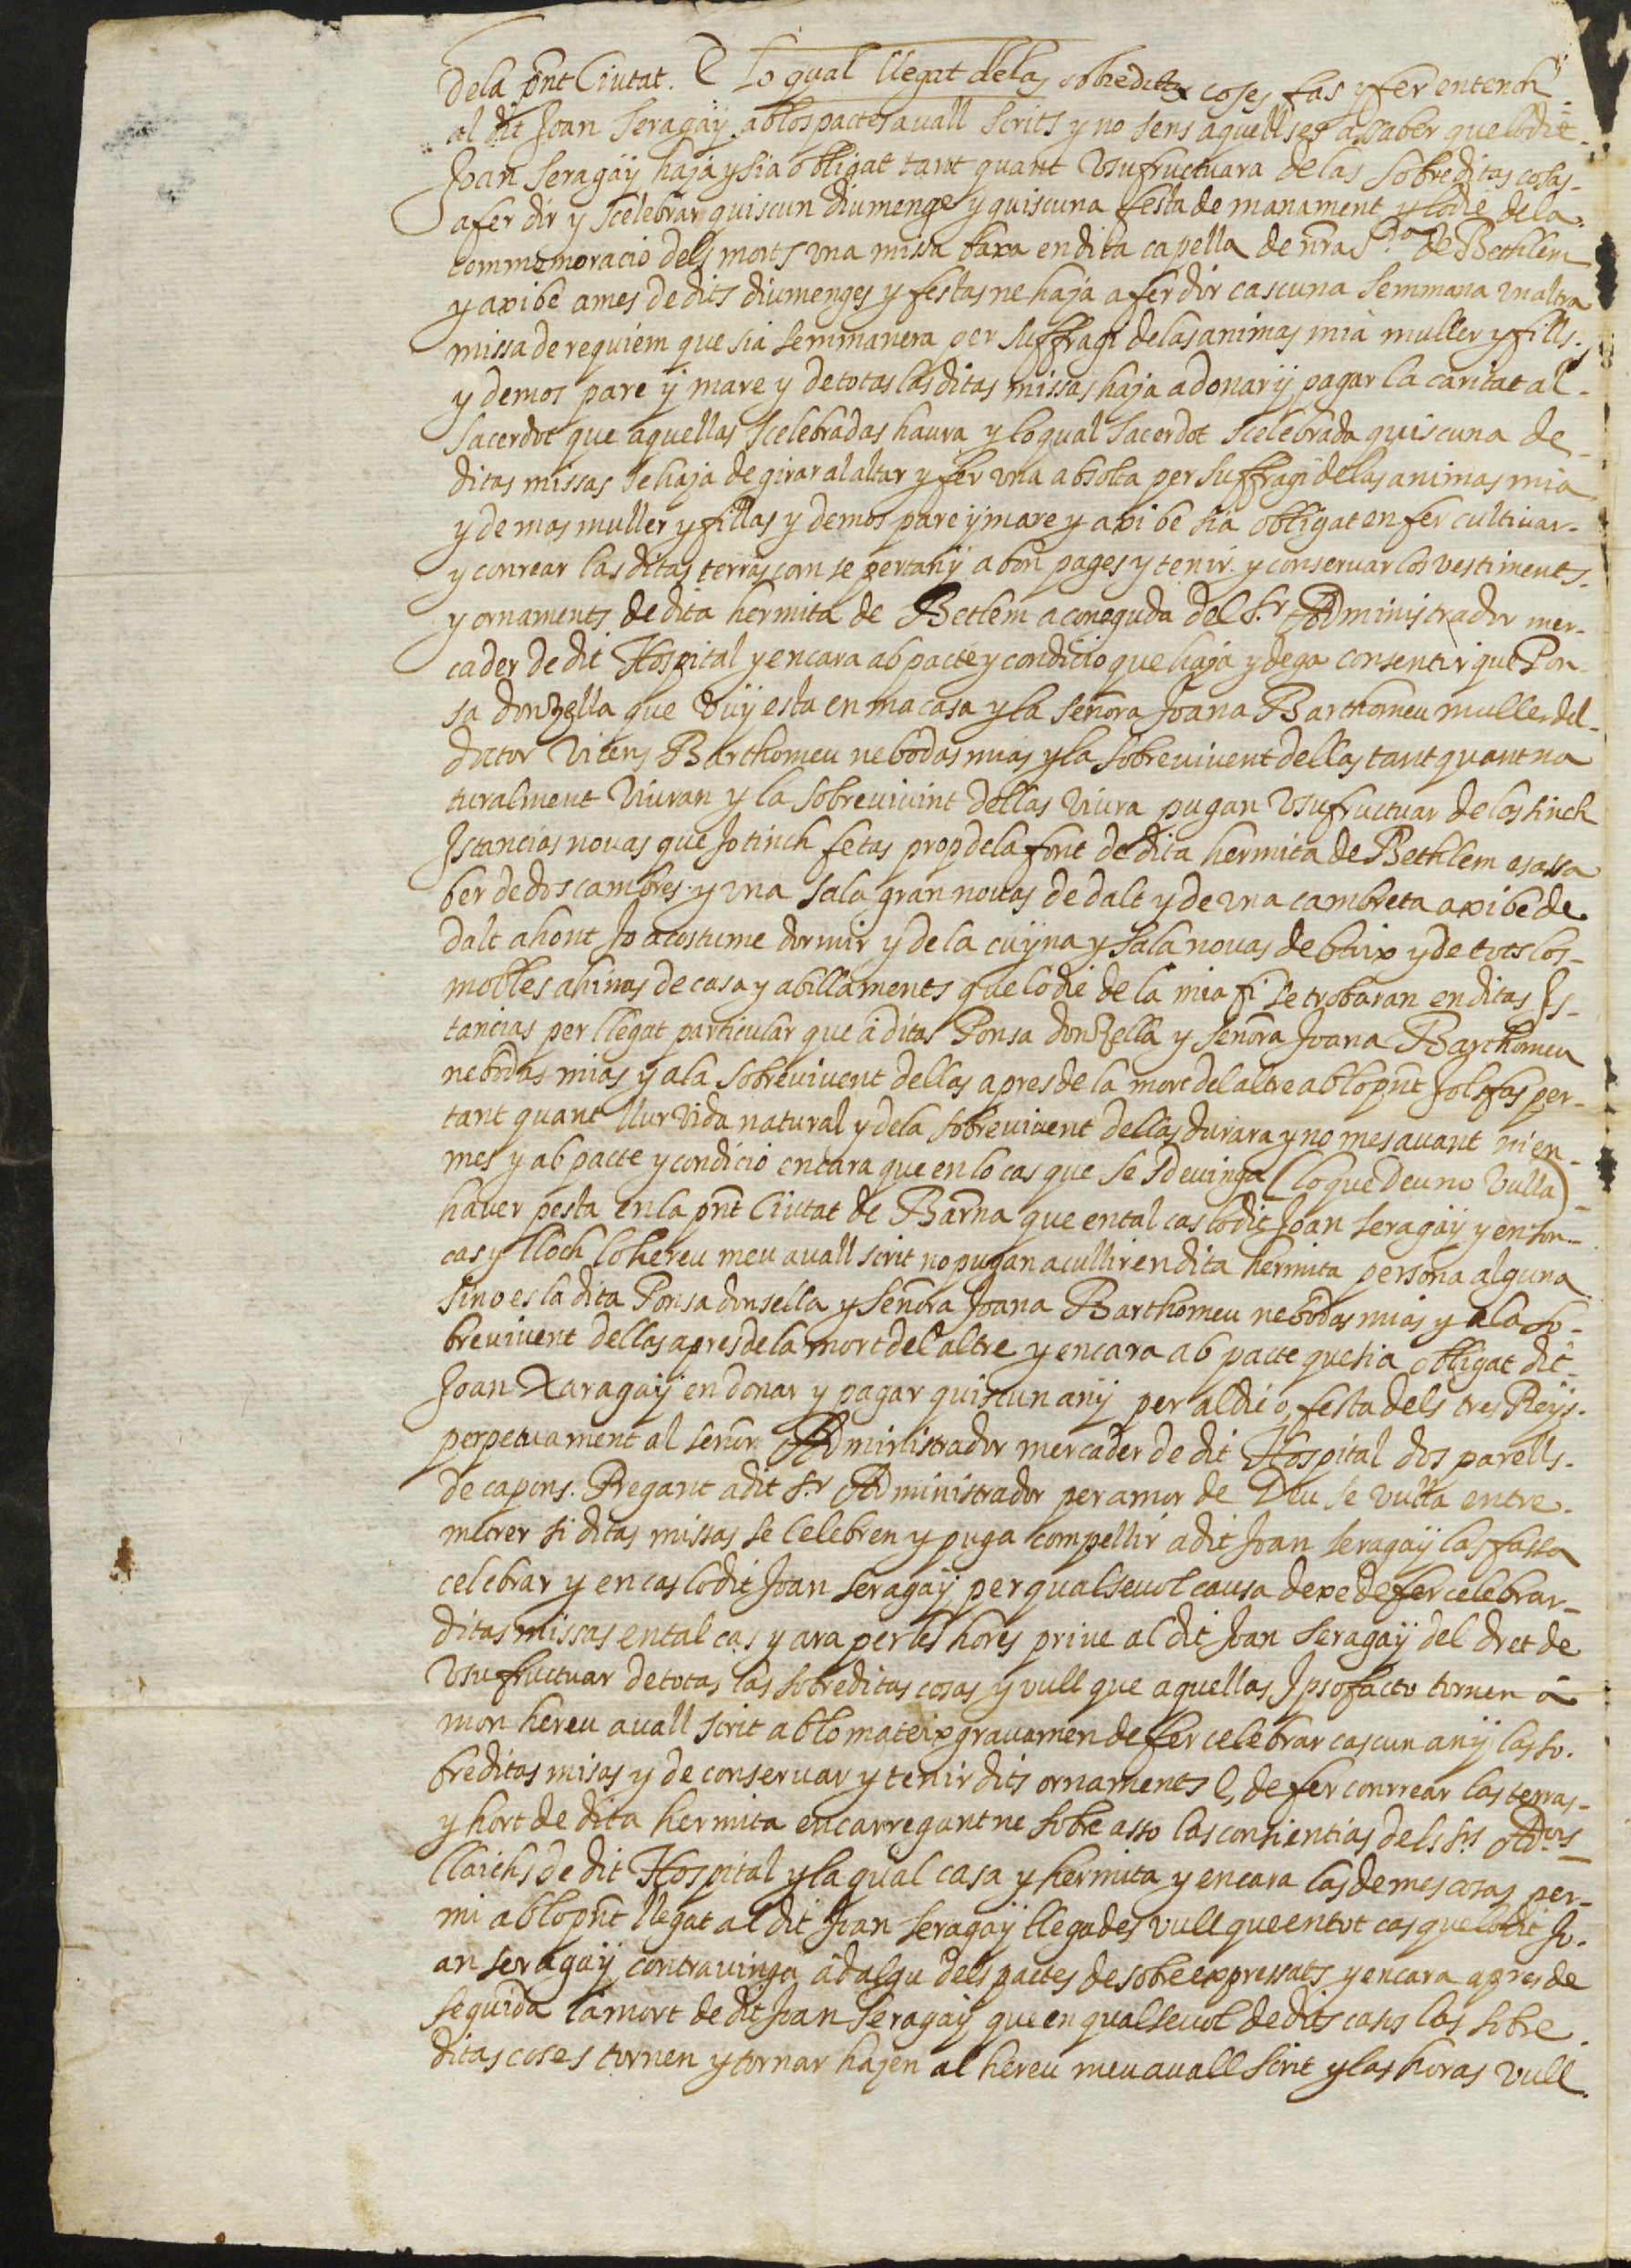 dela pñt Ciutat. E Lo qual llegat delas sobreditas coses fas y fer entench
al dit Joan Seragaÿ ab los pactes avall scrits y no sens aquells es assaber que lo dit
Joan Seragaÿ haja y sia obligat tant quant usufructuara de las sobreditas cosas
a fer dir y scelebrar quiscun diumenge y quiscuna festa de manament y lo die dela
commemoracio dels morts una missa baxa en dita capella de nr̃a S.ra de Bethlem
y axi be ames de dits diumenges y festas ne haja a fer dir cascuna semmana un altra
missa de requiem que sia semmanera per suffragi de las animas mia muller y fills
y de mos pare ÿ mare y de totas las ditas missas haja a donar ÿ pagar la caritat al
sacerdot que aquellas scelebradas haura y lo qual sacerdot scelebrada quiscuna de
ditas missas se haja de girar al altar y fer una absolta per suffragi de las animas mia
y de mas muller y fillas y de mos pare ÿ mare y axi be sia obligat en fer cultivar
y conrear las ditas terras com se pertanÿ a bon pages y tenir y conservar los vestiments
y ornaments de dita hermita de Betlem a coneguda del S.r Administrador mer-
cader de dit Hospital y encara ab pacte y condicio que haja y dega consentir que Pon-
sa donzella que vuÿ esta en ma casa y la señora Joana Barthomeu muller del
doctor Vicens Barthomeu nebodas mias y la sobrevivent dellas tant quant na
turalment viuran y la sobrevivint dellas viura pugan usufructuar de las sinch
Istancias novas que Jo tinch fetas prop dela font de dita hermita de Bethlem es assa
ber de dos cambres y una sala gran novas de dalt y de una cambreta axi be de
dalt ahont Jo acostume dormir y de la cuÿna y sala novas de baix y de tots los
mobles ahinas de casa y abillaments que lo die de la mia fi se trobaran en ditas Is-
tancias per llegat particular que a ditas Ponsa donzella y señora Joana Barthomeu
nebodas mias y ala sobrevivent dellas apres de la mort del altre ab lo pñt Jols fas per
tant quant llur vida natural y dela sobrevivent dellas durara y no mes avant ni en
mes y ab pacte y condicio encara que en lo cas que se sdevinga (lo que Deu no vulla)
haver pesta en la pñt Ciutat de Barña que en tal cas lo dit Joan Seragaÿ y en son
cas y lloch lo hereu meu avall scrit no pugan acullir en dita hermita persona alguna
sino es la dita Ponsa donsella y señora Joana Barthomeu nebodas mias y ala so-
brevivent dellas apres de la mort del altre y encara ab pacte que sia obligat dit
Joan Xaragaÿ en donar y pagar quiscun anÿ per al die o festa dels tres Reÿs
perpetuament al señor Administrador mercader de dit Hospital dos parells
de capons. Pregant a dit S.r Administrador per amor de Deu se vulla entre
metrer si ditas missas se celebren y puga compellir a dit Joan Seragaÿ las fassa
celebrar y en cas lo dit Joan Seragaÿ per qualsevol causa dexe de fer celebrar
ditas missas en tal cas y ara per les hores prive al dit Joan Seragaÿ del dret de
usufructuar de totas las sobreditas cosas y vull que aquellas Ipso facto tornen a
mon hereu avall scrit ab lo mateix gravamen de fer celebrar cascun anÿ las so-
breditas misas y de conservar y tenir dits ornaments e, de fer conrrear las terras
y hort de dita hermita encarregantne sobre asso las consientias dels S.rs Ad.dors
llaichs de dit Hospital y la qual casa y hermita y encara las demes cosas per
mi ab lo pñt llegat al dit Joan Seragaÿ llegades vull que en tot cas que lo dit Jo-
an Seragaÿ contravinga a dalgu dels pactes desobre expressats y encara apres de
seguida la mort de dit Joan Seragaÿ que en qualsevol de dits casos las sobre
ditas coses tornen y tornar hajen al hereu meu avall scrit y las horas vull